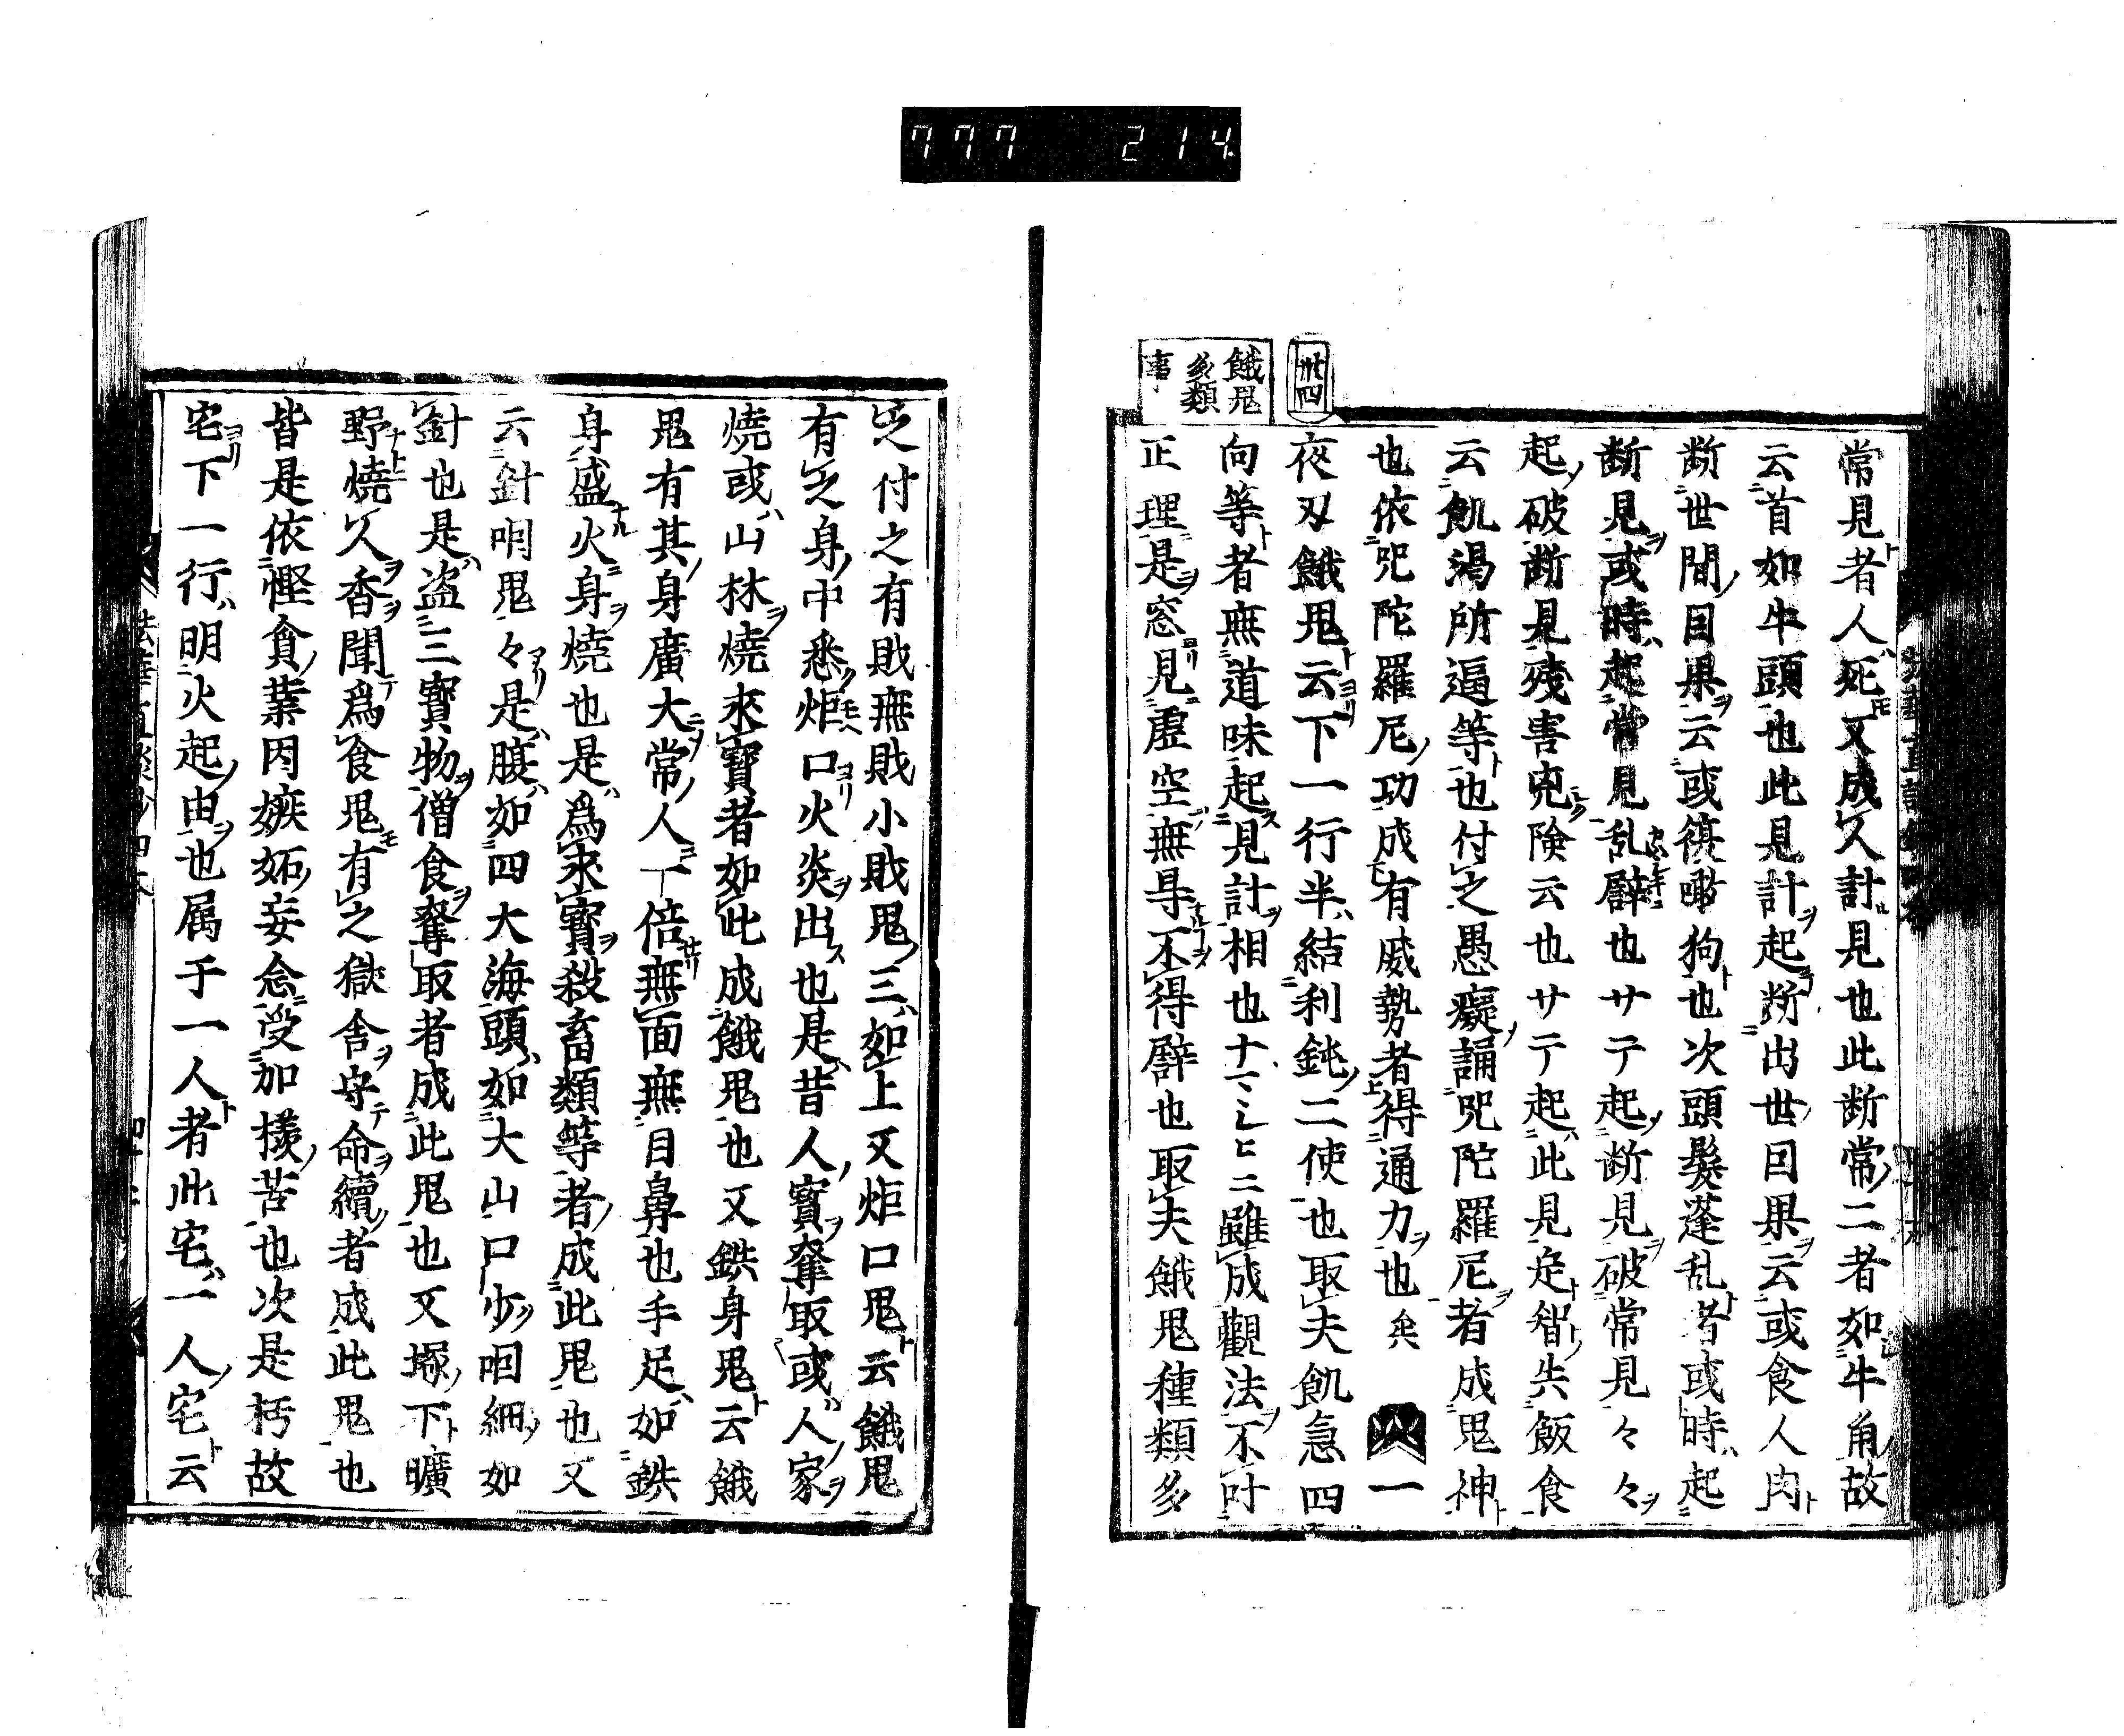 777 214
卅四
餓鬼
多類
事
常見者人死又成人計見也此断常二者如牛角故
云首如牛頭也此見計起断出世因果云或食人肉
断世間因果云或復噉狗也次頭髮蓬乱者或時起
断見或時起常見乱礕也サテ起断見破常見々々
起破断見残害兇険云也サテ起此見定智失飯食
云飢渇所逼等也付之愚癡誦咒陀羅尼者成鬼神
也依咒陀羅尼功成有威勢者得通力也矣 一
夜叉餓鬼云下一行半結利鈍二使也取夫飢急四
向等者無道味起見計相也雖成觀法不叶
正理是窓見虚空無㝵不得礕也取夫餓鬼種類多
之付之有財無財小財鬼三如上又炬口鬼云餓鬼
有之身中悉炬口火炎出也是昔人寳奪取或人家
燒或山林燒來寳者如此成餓鬼也又鉄身鬼云餓
鬼有其身廣大常人一倍無面無目鼻也手足如鉄
身盛火身燒也是爲求寳殺畜類等者成此鬼也又
云針咽鬼々是腹如四大海頭如大山口少咽細如
針也是盗三寳物僧食奪取者成此鬼也又塚下曠
野燒人香聞爲食鬼有之獄舎守命續者成此鬼也
皆是依慳貪業因嫉妬妄念受加樣苦也次是朽故
宅下一行明火起由也属于一人者此宅一人宅云